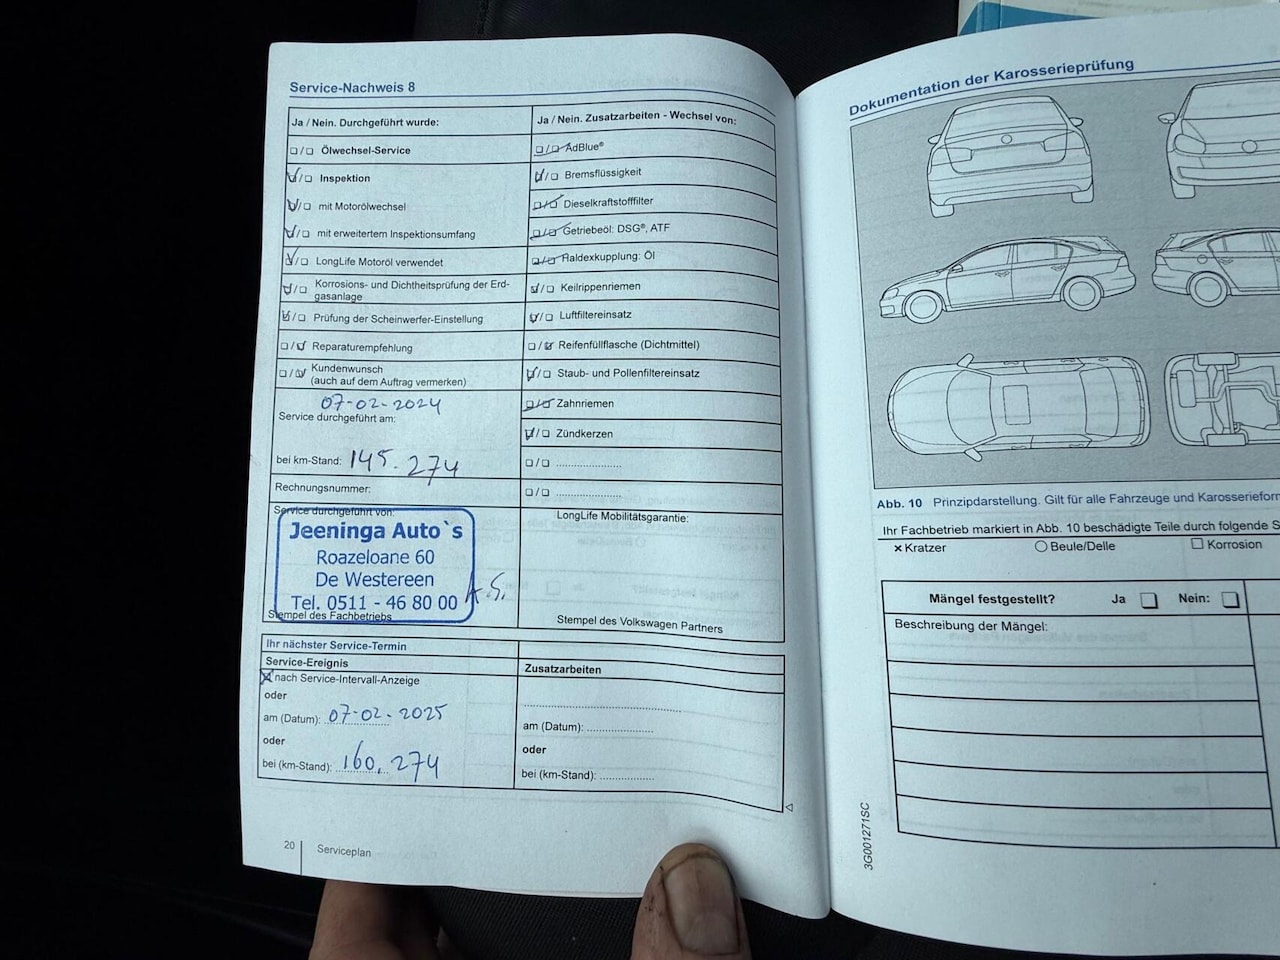 Service-Nachweis 8
Ja / Nein. Durchgeführt wurde:
Ölwechsel-Service
Inspektion
mit Motorölwechsel
mit erweitertem Inspektionsumfang
LongLife Motoröl verwendet
Korrosions- und Dichtheitsprüfung der Erd-
gasanlage
Prüfung der Scheinwerfer-Einstellung
Reparaturempfehlung
Kundenwunsch
(auch auf dem Auftrag vermerken)
07-02-2024
Service durchgeführt am:
bei km-Stand: 145.274
Rechnungsnummer:
Service durchgeführt von:
Jeeninga Auto`s
Roazeloane 60
De Westereen
Tel. 0511 - 46 80 00
Stempel des Fachbetriebs
Ja / Nein. Zusatzarbeiten - Wechsel von:
AdBlue®
Bremsflüssigkeit
Dieselkraftstofffilter
Getriebeöl: DSG®, ATF
Haldexkupplung: Öl
Keilrippenriemen
Luftfiltereinsatz
Reifenfüllflasche (Dichtmittel)
Staub- und Pollenfiltereinsatz
Zahnriemen
Zündkerzen
LongLife Mobilitätsgarantie:
Stempel des Volkswagen Partners
Ihr nächster Service-Termin
Service-Ereignis
nach Service-Intervall-Anzeige
oder
am (Datum): 07-02-2025
oder
bei (km-Stand): 160.274
Zusatzarbeiten
am (Datum):
oder
bei (km-Stand):
20
Serviceplan
Dokumentation der Karosserieprüfung
Abb. 10 Prinzipdarstellung. Gilt für alle Fahrzeuge und Karosserieform
Ihr Fachbetrieb markiert in Abb. 10 beschädigte Teile durch folgende S
× Kratzer
Beule/Delle
Korrosion
Mängel festgestellt? Ja Nein:
Beschreibung der Mängel:
3G001271SC